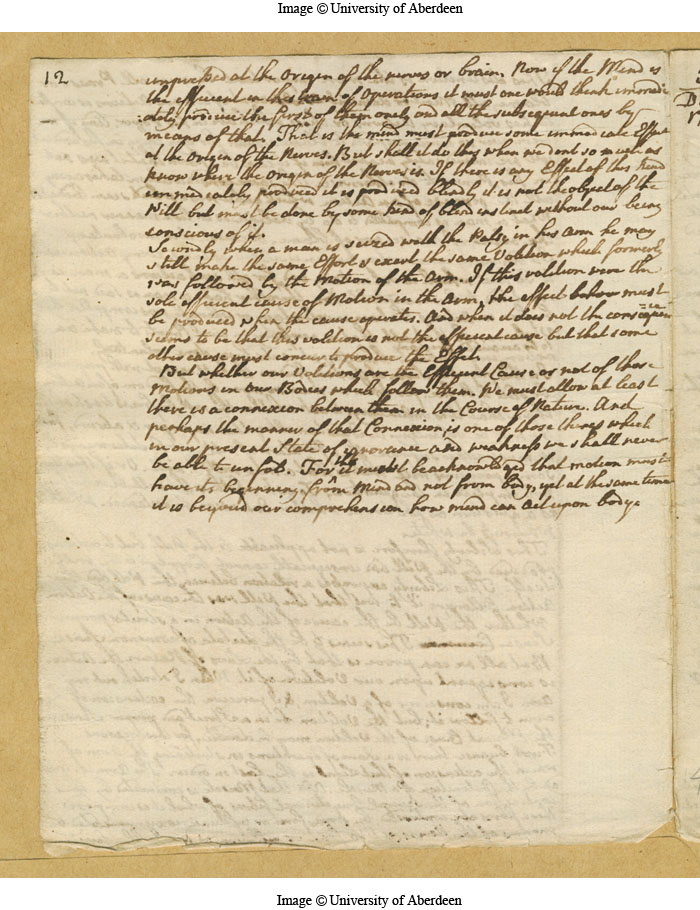 Image © University of Aberdeen
12
impressed at the Origin of the nerves or brain. Now if the Mind is
the efficient in this train of Operations it must one would think immedi
ately produce the first of them onely and all the subsequent ones by
means of that. That is the mind must produce some immediate Effect
at the Origin of the Nerves. But shall it do this when we dont so much as
know where the Origin of the Nerves is. If there is any Effect of this kind
immediately produced it is produced blindly it is not the object of the
Will but must be done by some kind of blind instinct without our being
conscious of it.
Secondly when a man is seized with the Palsy in his Arm he may
still make the same Effort & exert the same Volition which formerly
was followed by the Motion of the Arm. If this volition were the
sole efficient cause of Motion in the Arm, the effect must
be produced when the cause operates. And when it does not the consequence
seems to be that this volition is not the efficient cause but that some
other cause must concur to produce the Effect.
But whether our Volitions are the Efficient Cause or not of those
Motions in our Bodies which follow them. We must allow at least
there is a connexion between them in the Course of Nature. And
perhaps the manner of that Connexion is one of those things which
in our present State of ignorance and weakness we shall never
be able to unfold. For it must be acknowledged that motion must
have its beginning from Mind and not from body, yet at the same time
it is beyond our comprehension how mind can act upon body.
Image © University of Aberdeen